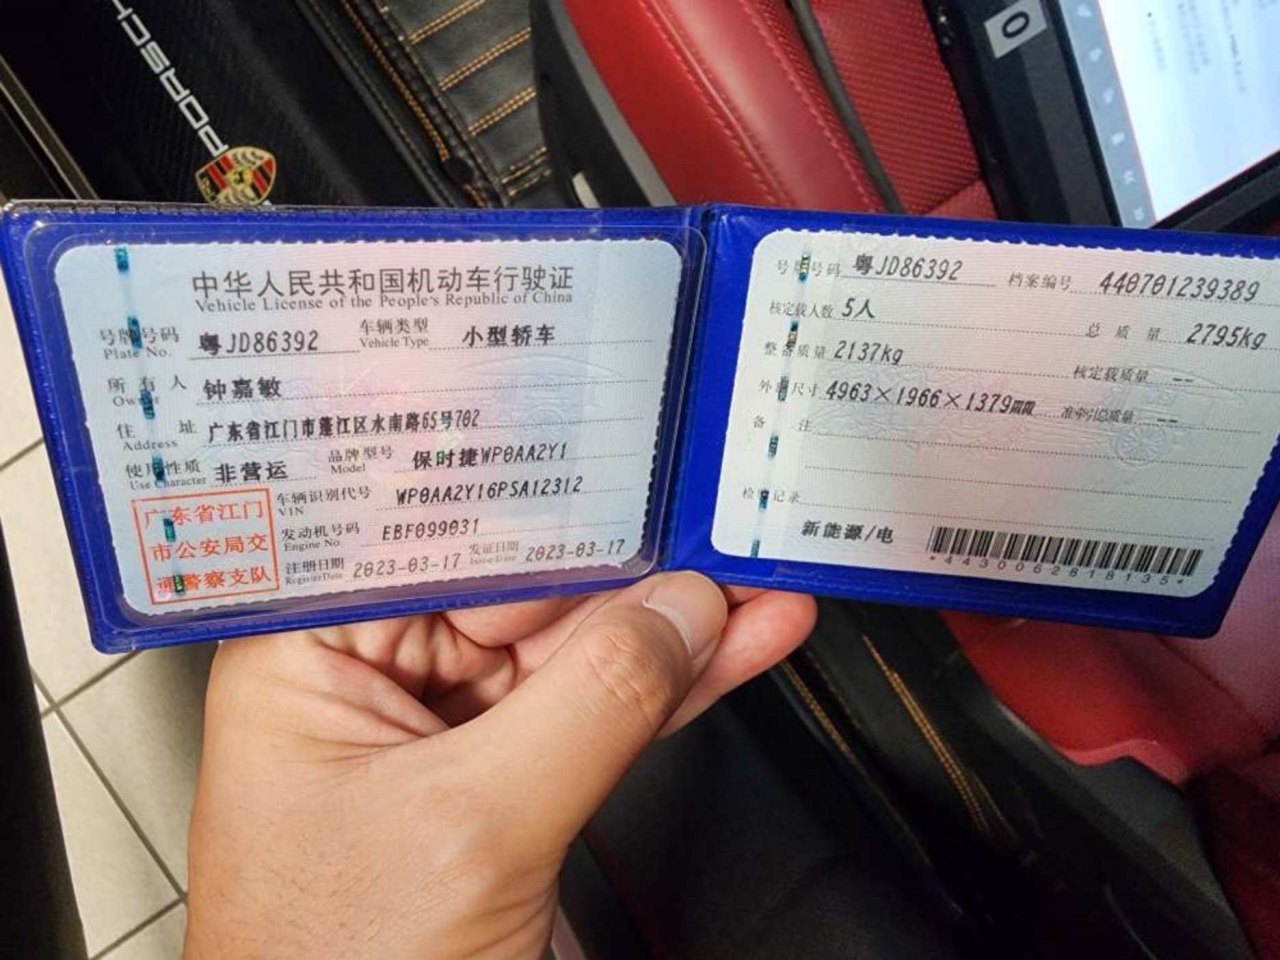 PORSCHE
中华人民共和国机动车行驶证
Vehicle License of the People's Republic of China
号牌号码 粤JD86392 车辆类型 小型轿车
Plate No. Vehicle Type
所有人 钟嘉敏
Owner
住址 广东省江门市蓬江区水南路65号702
Address
使用性质 非营运 品牌型号 保时捷WP0AA2Y1
Use Character Model
广东省江门
市公安局交
通警察支队
车辆识别代号 WP0AA2Y16PSA12312
VIN
发动机号码 EBF099031
Engine No.
注册日期 2023-03-17 发证日期 2023-03-17
Register Date Issue Date
号牌号码 粤JD86392 档案编号 440701239389
核定载人数 5人 总质量 2795kg
整备质量 2137kg 核定载质量 --
外廓尺寸 4963×1966×1379mm 准牵引总质量 --
备注
检验记录
新能源/电
*4430062818135*